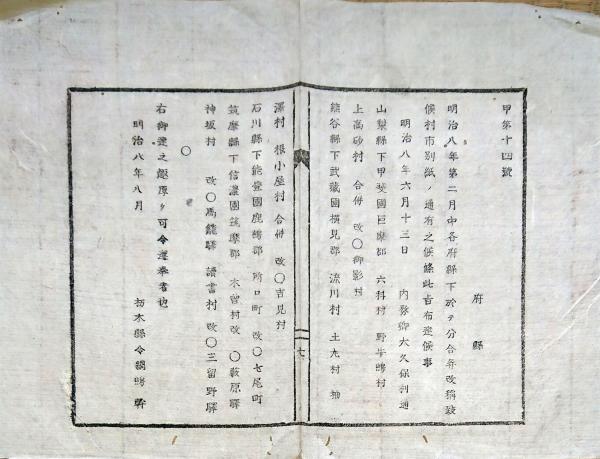 甲第十四號
府縣
明治八年第二月中各府縣下於テ分合并改稱致
候村市別紙ノ通有之候條此旨布達候事
明治八年六月十三日 内務卿大久保利通
山梨縣下甲斐國巨摩郡 六科村 野牛嶋村
上高砂村 合併 改〇御影村
熊谷縣下武藏國横見郡 流川村 土丸村 柚
澤村 根小屋村 合併 改〇吉見村
石川縣下能登國鹿嶋郡 所口町 改〇七尾町
筑摩縣下信濃國筑摩郡 木曽村改 〇薮原驛
神坂村 改〇馬籠驛 讀書村 改〇三留野驛
〇
右御達之趣原ク可令遵奉者也
明治八年八月 栃木縣令鍋嶋 幹
七